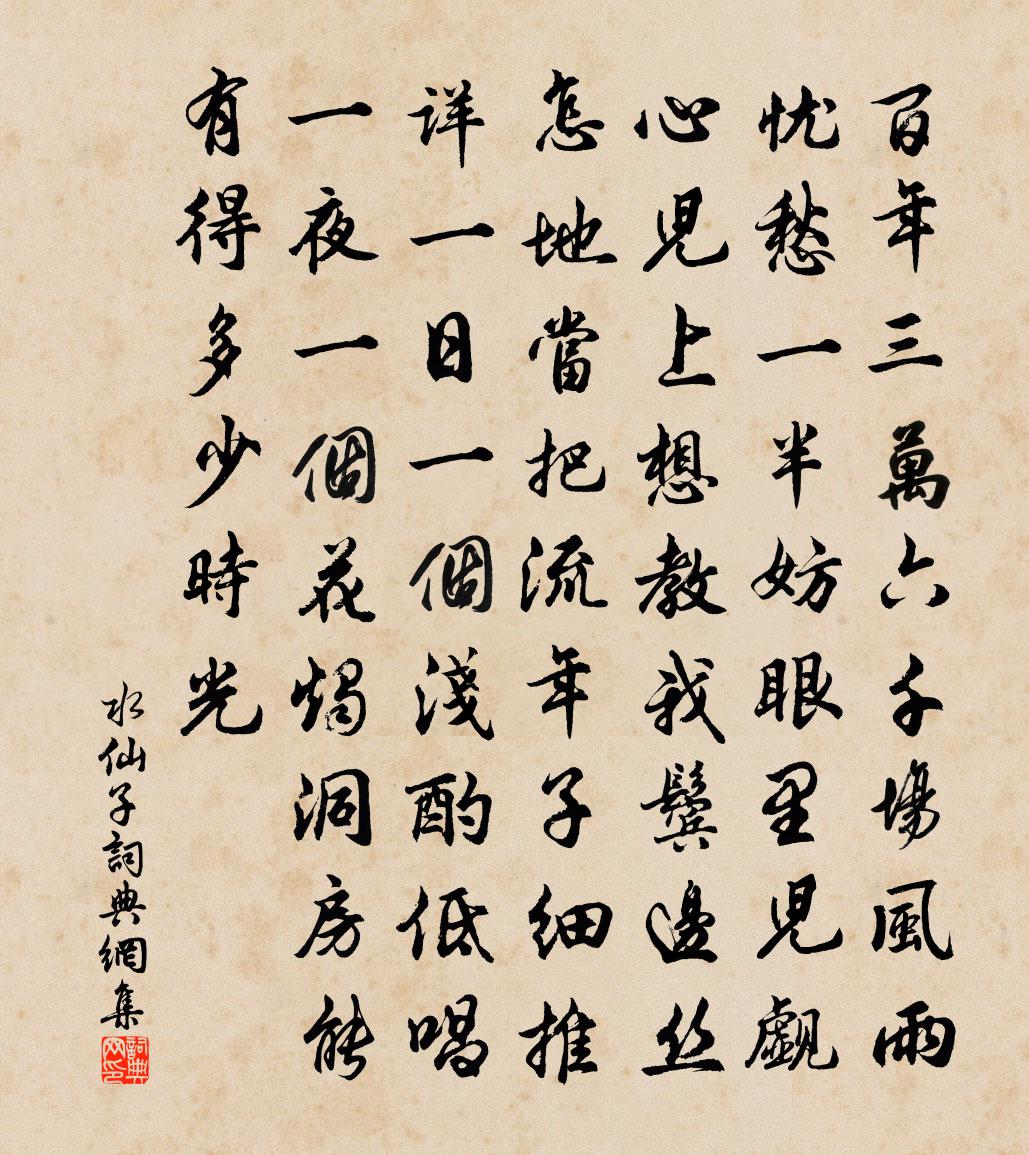 百年三萬六千場風雨
忧愁一半妨眼里見覷
心見上想教我鬓邊丝
怎地當把流年子細推
詳一日一個淺酌低唱
一夜一個花燭洞房能
有得多少時光
水仙子詞典網集
詞典网印